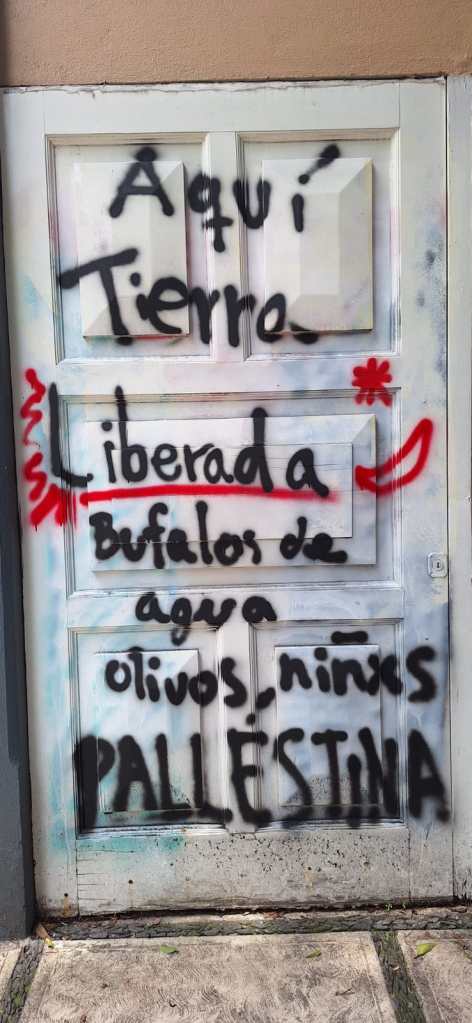 Aquí
Tierra
Liberada
Bufalos de
agua
olivos, niñxs
PALLESTINA